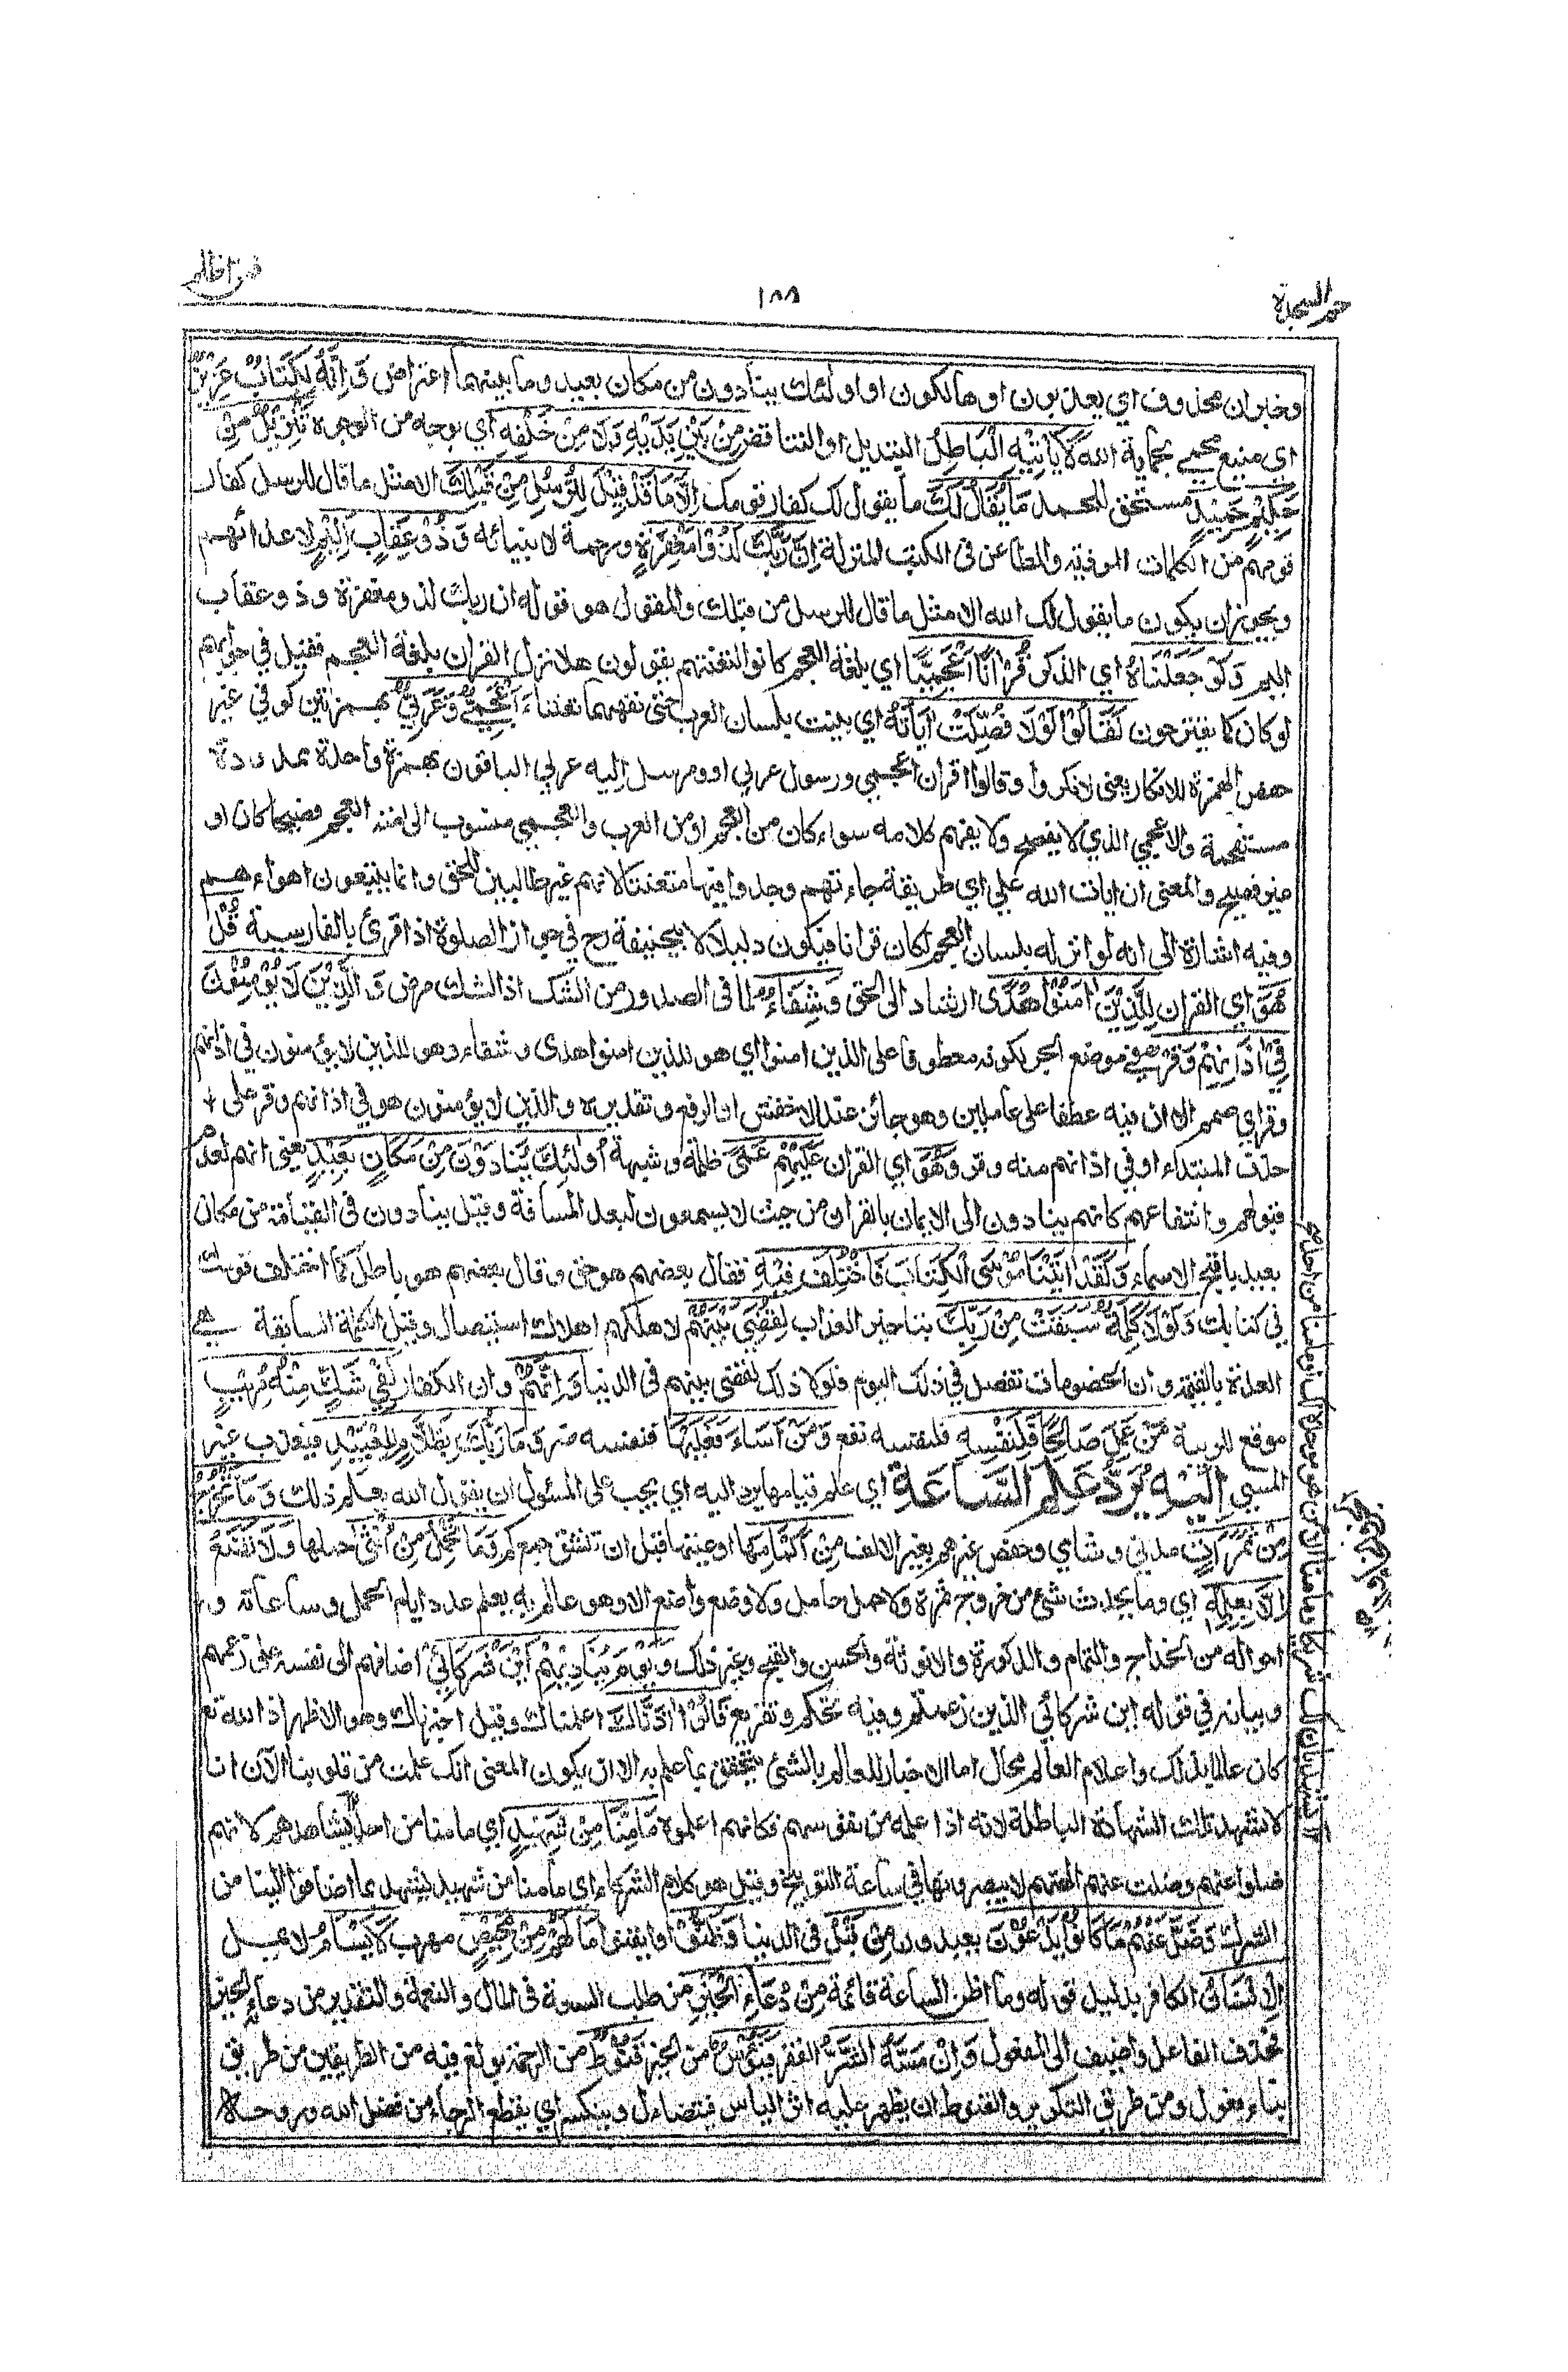 حم السجدة
١٨٨
فمن اظلم
وخبر ان محذوف اي يعذبون او هالكون او اولئك ينادون من مكان بعيد وما بينهما اعتراض وَاِنَّهٗ لَكِتَابٌ عَزِيْزٌ
اي منيع محمي بحماية الله لَا يَاْتِيْهِ الْبَاطِلُ التبديل او التناقض مِنْ بَيْنِ يَدَيْهِ وَلَا مِنْ خَلْفِهٖ اي بوجه من الوجوه تَنْزِيْلٌ مِّنْ
حَكِيْمٍ حَمِيْدٍ مستحق للحمد مَا يُقَالُ لَكَ ما يقول لك كفار قومك اِلَّا مَا قَدْ قِيْلَ لِلرُّسُلِ مِنْ قَبْلِكَ الا مثل ما قال للرسل كفار
قومهم من الكلمات الموذية والمطاعن في الكتب المنزلة اِنَّ رَبَّكَ لَذُوْ مَغْفِرَةٍ ورحمة لانبيائه وَّذُوْ عِقَابٍ اَلِيْمٍ لاعدائهم
ويجوز ان يكون ما يقول لك الله الا مثل ما قال للرسل من قبلك والمقول هو قوله ان ربك لذو مغفرة وذو عقاب
اليم وَلَوْ جَعَلْنَاهُ اي الذكر قُرْاٰنًا اَعْجَمِيًّا اي بلغة العجم كانوا لتعنتهم يقولون هلا نزل القران بلغة العجم فقيل في جوابهم
لو كان كما يقترحون لَقَالُوْا لَوْلَا فُصِّلَتْ اٰيَاتُهٗ اي بينت بلسان العرب حتى نفهمها تعنتا ءَاَعْجَمِيٌّ وَّعَرَبِيٌّ بهمزتين كوفي غير
حفص الهمزة للانكار يعني لانكروا وقالوا اقران اعجمي ورسول عربي او مرسل اليه عربي الباقون بهمزة واحدة ممدودة
مستفهمة والاعجمي الذي لا يفصح ولا يفهم كلامه سواء كان من العجم او من العرب والعجمي منسوب الى امة العجم فصيحا كان او
غير فصيح والمعنى ان ايات الله علي اي طريقة جاءتهم وجدوا فيها متعنتا لانهم غير طالبين للحق وانما يتبعون اهواءهم
وفيه اشارة الى انه لو انزله بلسان العجم لكان قرانا فيكون دليلا لابي حنيفة رح في جواز الصلوة اذا قرئ بالفارسية قُلْ
هُوَ اي القران لِلَّذِيْنَ اٰمَنُوْا هُدًى ارشاد الى الحق وَّشِفَاءٌ لما في الصدور من الشك اذ الشك مرض وَالَّذِيْنَ لَا يُؤْمِنُوْنَ
فِيْ اٰذَانِهِمْ وَقْرٌ في موضع الجر لكونه معطوفا على الذين امنوا اي هو للذين امنوا هدى وشفاء وهو للذين لا يؤمنون في اذانهم
وقر اي صمم الا ان فيه عطفا على عاملين وهو جائز عند الاخفش او الرفع وتقديره والذين لا يؤمنون هو في اذانهم وقر على
حذف المبتداء او في اذانهم منه وقر وَّهُوَ اي القران عَلَيْهِمْ عَمًى ظلمة وشبهة اُولٰئِكَ يُنَادَوْنَ مِنْ مَّكَانٍ بَعِيْدٍ يعني انهم لعدم
قبولهم وانتفاعهم كانهم ينادون الى الايمان بالقران من حيث لا يسمعون لبعد المسافة وقيل ينادون في القيامة من مكان
بعيد باقبح الاسماء وَلَقَدْ اٰتَيْنَا مُوْسَى الْكِتَابَ فَاخْتُلِفَ فِيْهِ فقال بعضهم هو حق وقال بعضهم هو باطل كما اختلف قومك
في كتابك وَلَوْلَا كَلِمَةٌ سَبَقَتْ مِنْ رَّبِّكَ بتاخير العذاب لَقُضِيَ بَيْنَهُمْ لاهلكهم اهلاك استيصال وقيل الكلمة السابقة هي
العدة بالقيمة وان الخصومات تفصل في ذلك اليوم فلولا ذلك لقضى بينهم في الدنيا وَاِنَّهُمْ وان الكفار لَفِيْ شَكٍّ مِّنْهُ مُرِيْبٍ
موقع للريبة مَنْ عَمِلَ صَالِحًا فَلِنَفْسِهٖ فلنفسه نفع وَمَنْ اَسَاءَ فَعَلَيْهَا فنفسه ضر وَمَا رَبُّكَ بِظَلَّامٍ لِّلْعَبِيْدِ فيعذب غير
المسيئ اِلَيْهِ يُرَدُّ عِلْمُ السَّاعَةِ اي علم قيامها يرد اليه اي يجب على المسئول ان يقول الله يعلم ذلك وَمَا تَخْرُجُ
مِنْ ثَمَرَاتٍ مدني وشامي وحفص غيرهم بغير الالف مِّنْ اَكْمَامِهَا اوعيتها قبل ان تنشق جمع كم وَمَا تَحْمِلُ مِنْ اُنْثٰى حملها وَلَا تَضَعُ
اِلَّا بِعِلْمِهٖ اي وما يحدث شئ من خروج ثمرة ولا حمل حامل ولا وضع واضع الا وهو عالم به يعلم عدد ايام الحمل وساعاته و
احواله من الخداج والتمام والذكورة والانوثة والحسن والقبح وغير ذلك وَيَوْمَ يُنَادِيْهِمْ اَيْنَ شُرَكَائِيْ اضافهم الى نفسه على زعمهم
وبيانه في قوله اين شركائي الذين زعمتم وفيه تهكم وتقريع قَالُوْا اٰذَنَّاكَ اعلمناك وقيل اخبرناك وهو الاظهر اذ الله تع
كان عالما بذلك واعلام العالم محال اما الاخبار للعالم بالشئ يتحقق بما علم به الا ان يكون المعنى انك علمت من قلوبنا الان انا
لا نشهد تلك الشهادة الباطلة لانه اذا علمه من نفوسهم فكانهم اعلموه مَا مِنَّا مِنْ شَهِيْدٍ اي ما منا من احد يشاهدهم لانهم
ضلوا عنهم وضلت عنهم الهتهم لا يبصرونها في ساعة التوبيخ وقيل هو كلام الشركاء اي ما منا من شهيد يشهد بما اضافوا الينا من
الشرك وَضَلَّ عَنْهُمْ مَّا كَانُوْا يَدْعُوْنَ يعبدون مِنْ قَبْلُ في الدنيا وَظَنُّوْا وايقنوا مَا لَهُمْ مِّنْ مَّحِيْصٍ مهرب لَا يَسْاَمُ لا يمل
الْاِنْسَانُ الكافر بدليل قوله وما اظن الساعة قائمة مِنْ دُعَاءِ الْخَيْرِ من طلب السعة في المال والنعمة والتقدير من دعائه الخير
فحذف الفاعل واضيف الى المفعول وَاِنْ مَّسَّهُ الشَّرُّ الفقر فَيَئُوْسٌ من الخير قَنُوْطٌ من الرحمة بولغ فيه من الطريقين من طريق
بناء فعول ومن طريق التكرير والقنوط ان يظهر عليه اثر الياس فيتضاءل وينكسر اي يقطع الرجاء من فضل الله وروحه